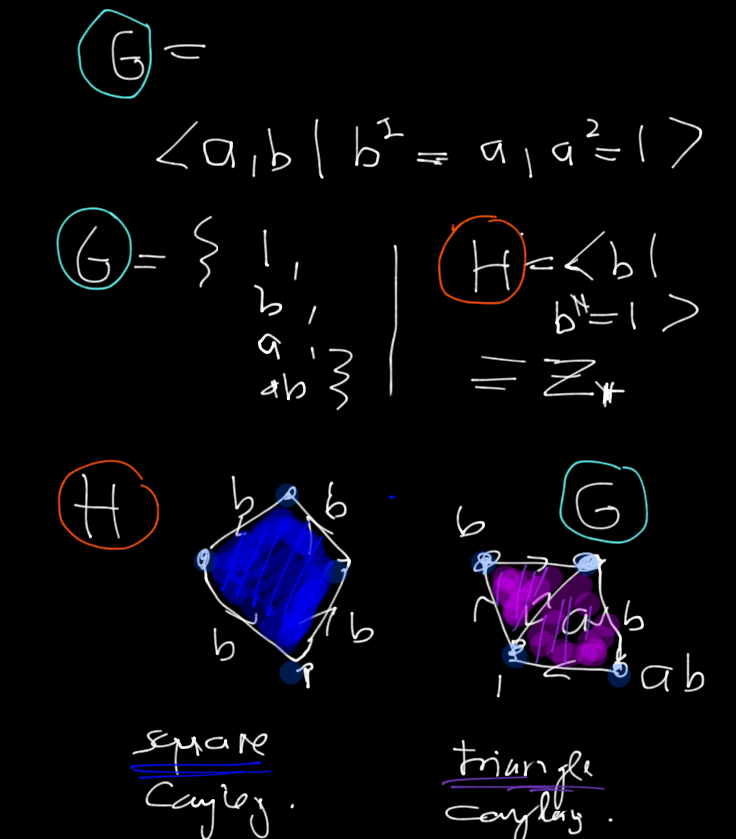 G =
<a, b | b² = a, a² = 1>
G = { 1,
b,
a,
ab }
H = <b |
b⁴ = 1 >
= Z₄
H
b b
b b
G
b
a b
1 ab
square
Cayley.
triangle
Cayley.